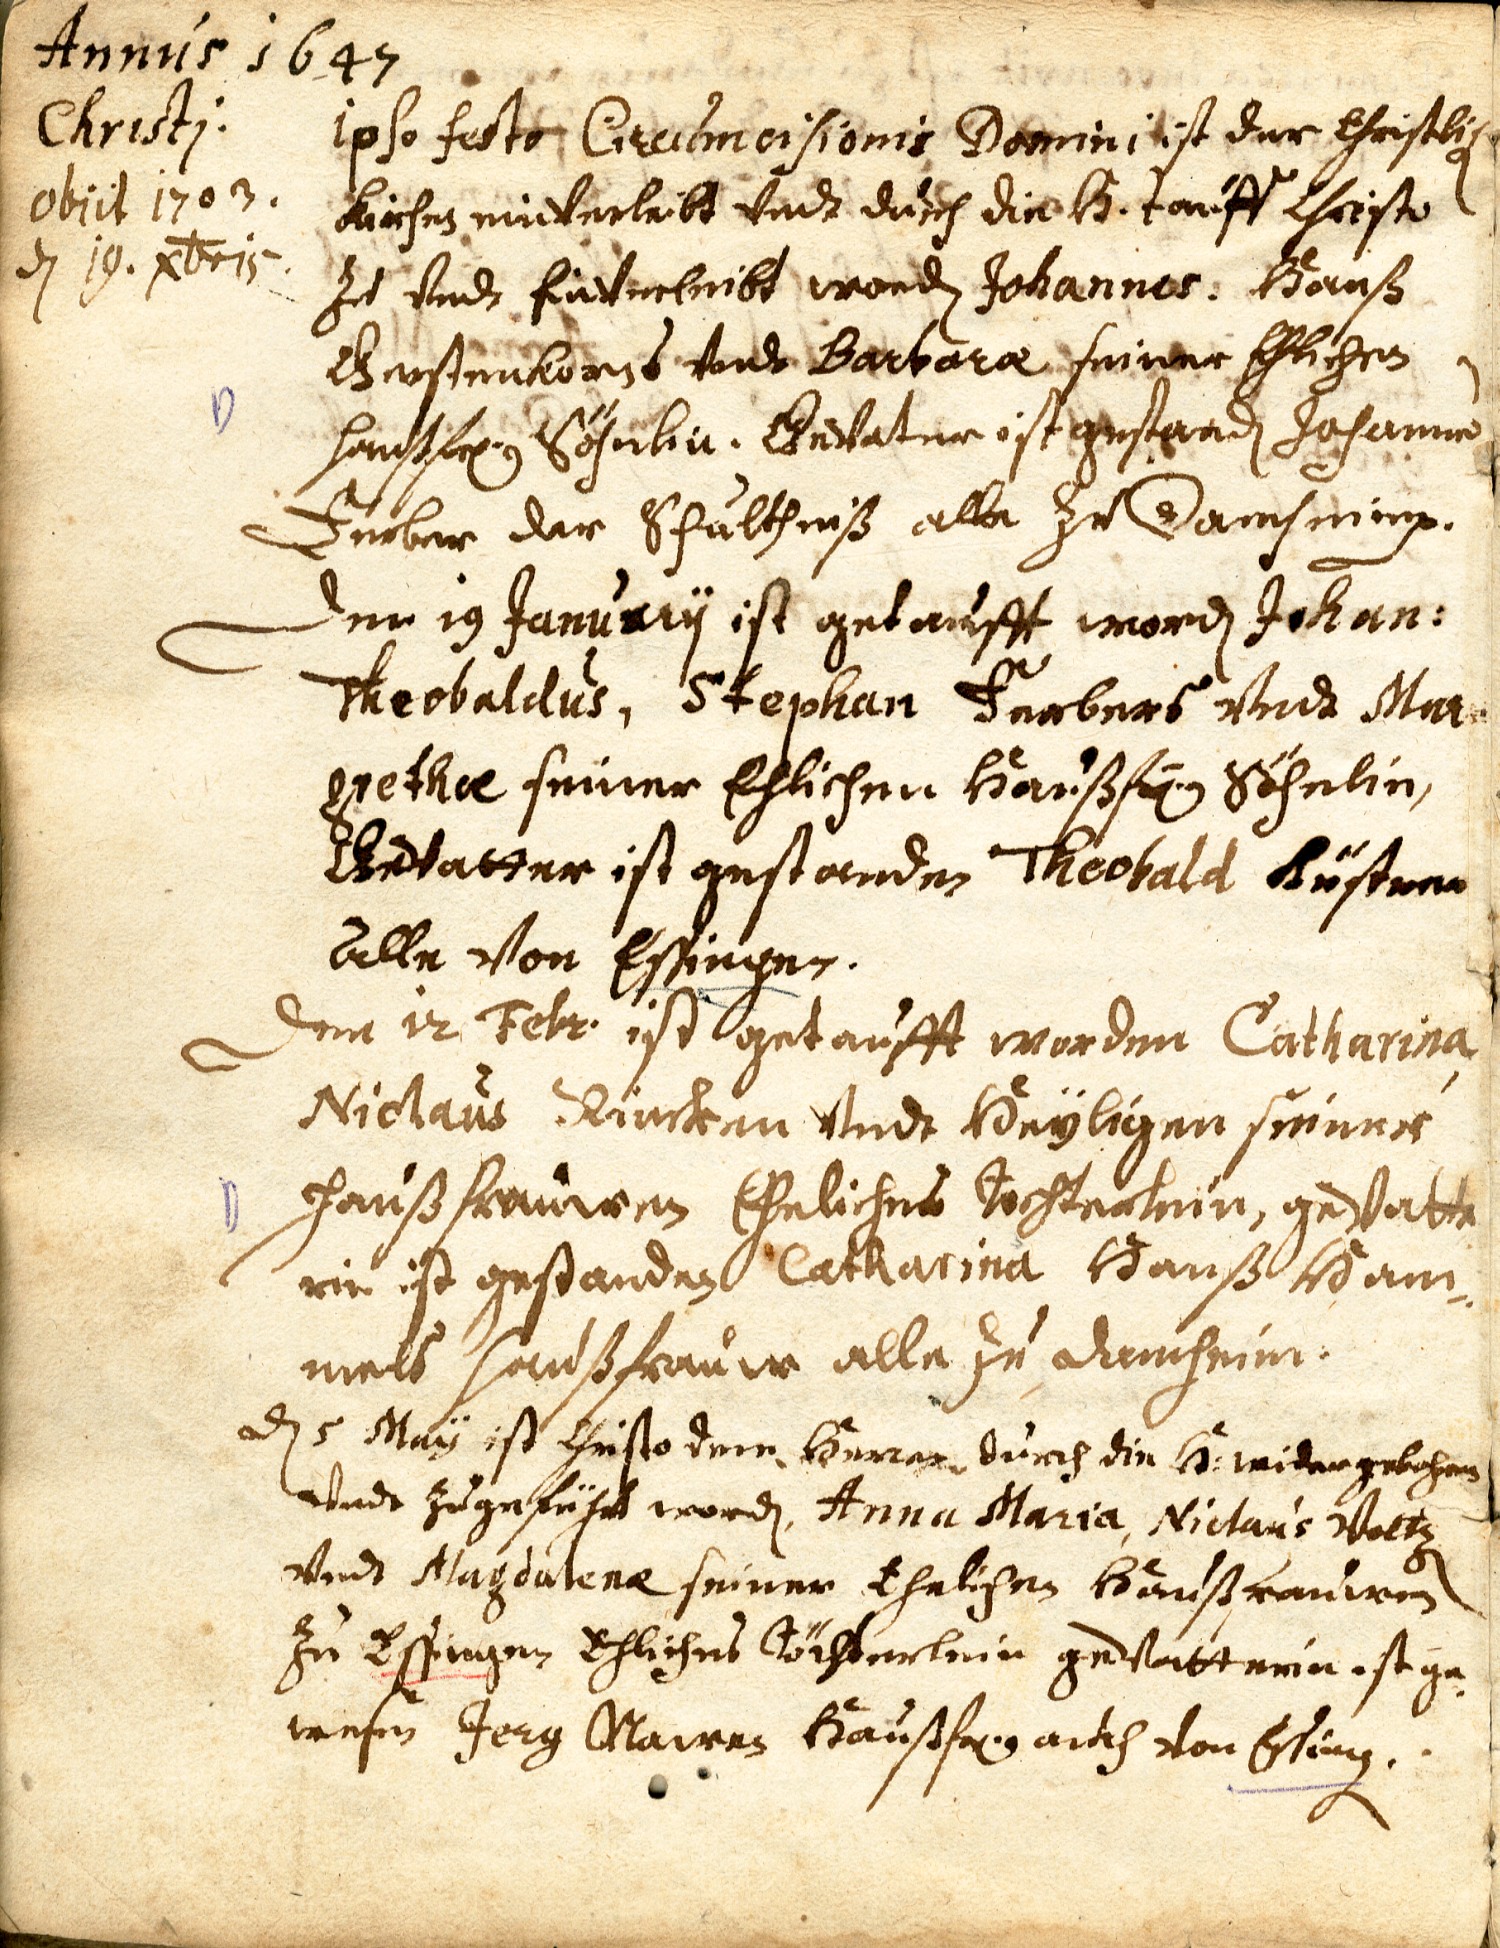 Annus 1647
Christj.
obiit 1703.
dℓ 19. xbris.
Ipso festo Circumcisionis Domini ist der Christlich
Kirchen einverleibt undt durch die H. Tauff Christo
Zu undt Einverleibt wordℓ Johannes. Hanß
Gerstenkorns undt Barbaræ seiner Ehlichen
haußfr. Söhnlin. Gevatter ist gestandℓ Johannes
Ferber der Schultheiß alle zu Damheimb.
Den 19 Januarij ist getaufft wordℓ Johan:
Theobaldus, Stephan Ferbers undt Mar
grethæ seiner Ehlichen Haußfr. Söhnlin,
Gevatter ist gestanden Theobald Küster
Alle von Essingen.
Den 12 Febr. ist getaufft worden Catharina,
Niclaus Rincken undt Heyligen seiner
haußfrauwen Eheliches Tochterlein, gevatte
rin ist gestanden Catharina Hanß Ham-
mels haußfrauw alle zu Damheim.
dℓ 5 Maij ist Christo dem Herren durch die H. widergebohrn
undt zugeführt wordℓ, Anna Maria, Niclaus Voltz
undt Magdalenæ seiner Ehelichen Haußfrauwen
zu Essingen Ehliches Töchterlein gevatterin ist ge-
wesen Jerg Mawren Haußfr. auch von Essing.